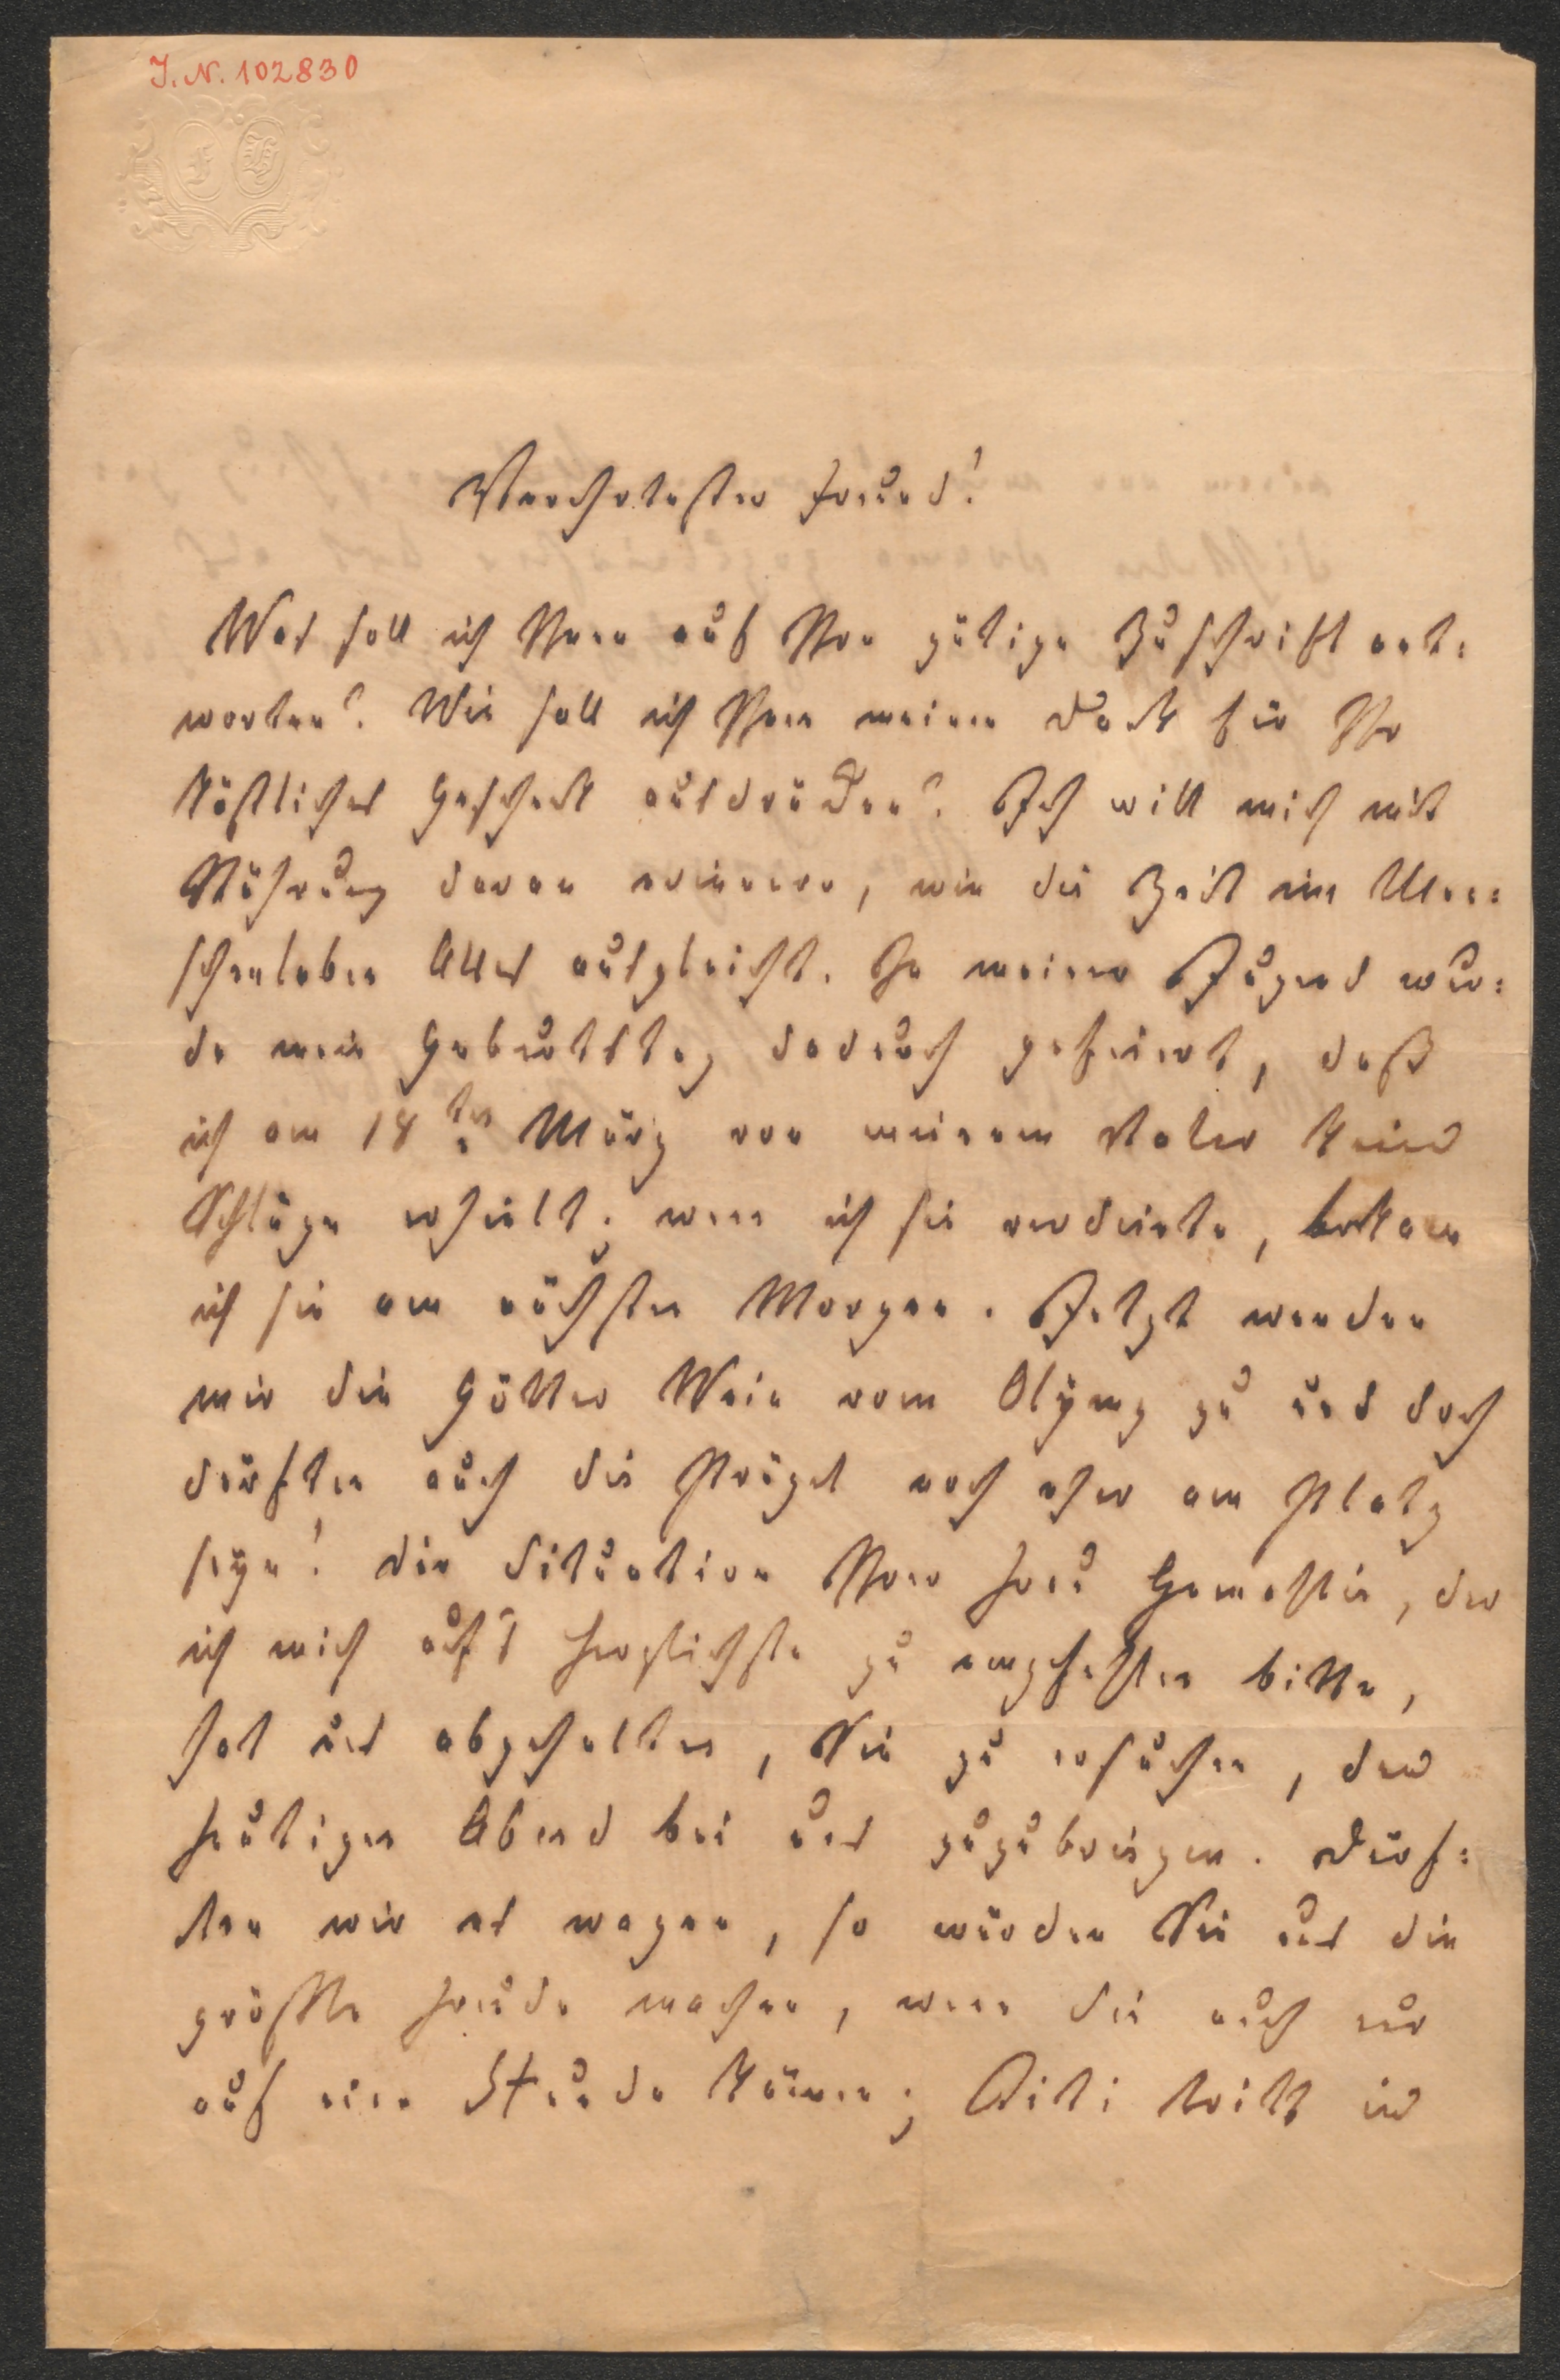 J. N. 102830
Verehrtester Freund!
Was soll ich Ihnen auf Ihre gütige Zuschrift ant:
worten? Wie soll ich Ihnen meinen Dank für Ihr
köstliches Geschenk ausdrücken? Ich will mich mit
Rührung daran erinnern, wie die Zeit im Men:
schenleben Alles ausgleicht. In meiner Jugend wur:
de mein Geburtstag dadurch gefeiert, daß
ich am 18ten März von meinem Vater keine
Schläge erhielt; wenn ich sie verdiente, bekam
ich sie am nächsten Morgen. Jetzt senden
mir die Götter Wein vom Olymp zu und doch
dürften auch die Prügel noch eher am Platz
seyn! Die Situation Ihrer Frau Gemahlin, der
ich mich auf's herzlichste zu empfehlen bitte,
hat uns abgehalten, Sie zu ersuchen, den
heutigen Abend bei uns zuzubringen. Dürf:
ten wir es wagen, so würden Sie uns die
größte Freude machen, wenn Sie auch nur
auf eine Stunde kämen; Titi tritt in